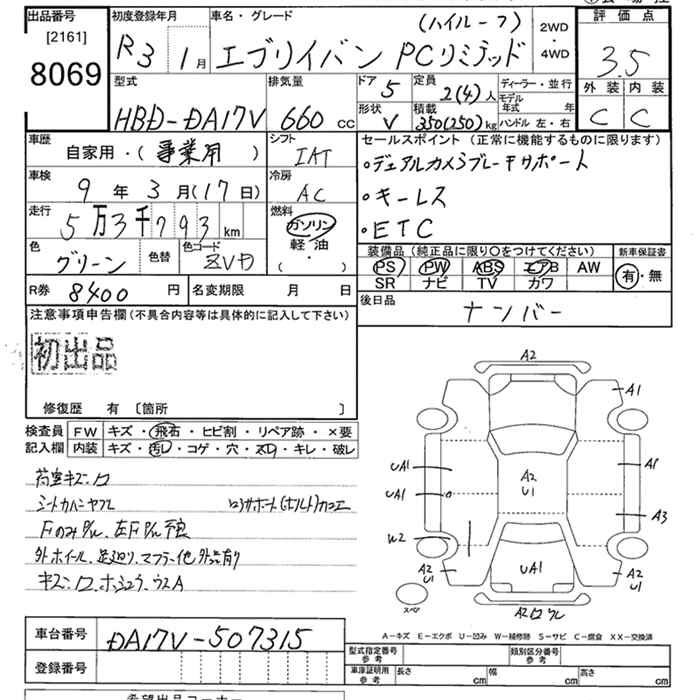 出品番号
[2161]
8069
初度登録年月
R3 1月
車名・グレード
(ハイルーフ)
エブリイバン PCリミテッド
2WD
・
4WD
評価点
3.5
外装 内装
C C
型式
HBD-DA17V
排気量
660 cc
ドア 5
形状 V
定員 2(4)人
積載 350(250)kg
ディーラー・並行
モデル年式 年
ハンドル 左・右
車歴
自家用・(事業用)
シフト
IAT
車検
9年3月(17日)
冷房
AC
走行
5万3千793km
燃料
ガソリン
軽油
( ・ )
色
グリーン
色替
色コード
ZVD
セールスポイント(正常に機能するものに限ります)
・デュアルカメラブレーキサポート
・キーレス
・ETC
装備品(純正品に限り○をつけてください)
PS PW ABS エアB AW
SR ナビ TV カワ
新車保証書
有・無
R券 8400円
名変期限 月 日
後日品
ナンバー
注意事項申告欄(不具合内容等は具体的に記入して下さい)
初出品
修復歴 有 〔箇所 〕
検査員記入欄
FW キズ・飛石・ヒビ割・リペア跡・×要
内装 キズ・汚レ・コゲ・穴・スレ・キレ・破レ
荷室キズ、ロ
シートカバーヤブレ
外ホイール、足廻り、マフラー他外品有り
A2
A1
UA1
A1
A2
U1
UA1
A3
W2
A2
U1
UA1
A2
U1
スペア
A2
A-キズ E-エクボ U-凹み W-補修跡 S-サビ C-腐食 XX-交換済
車台番号
DA17V-507315
登録番号
型式指定番号
参考
類別区分番号
参考
車庫証明用
参考
長さ cm
幅 cm
高さ cm
希望出品コーナー